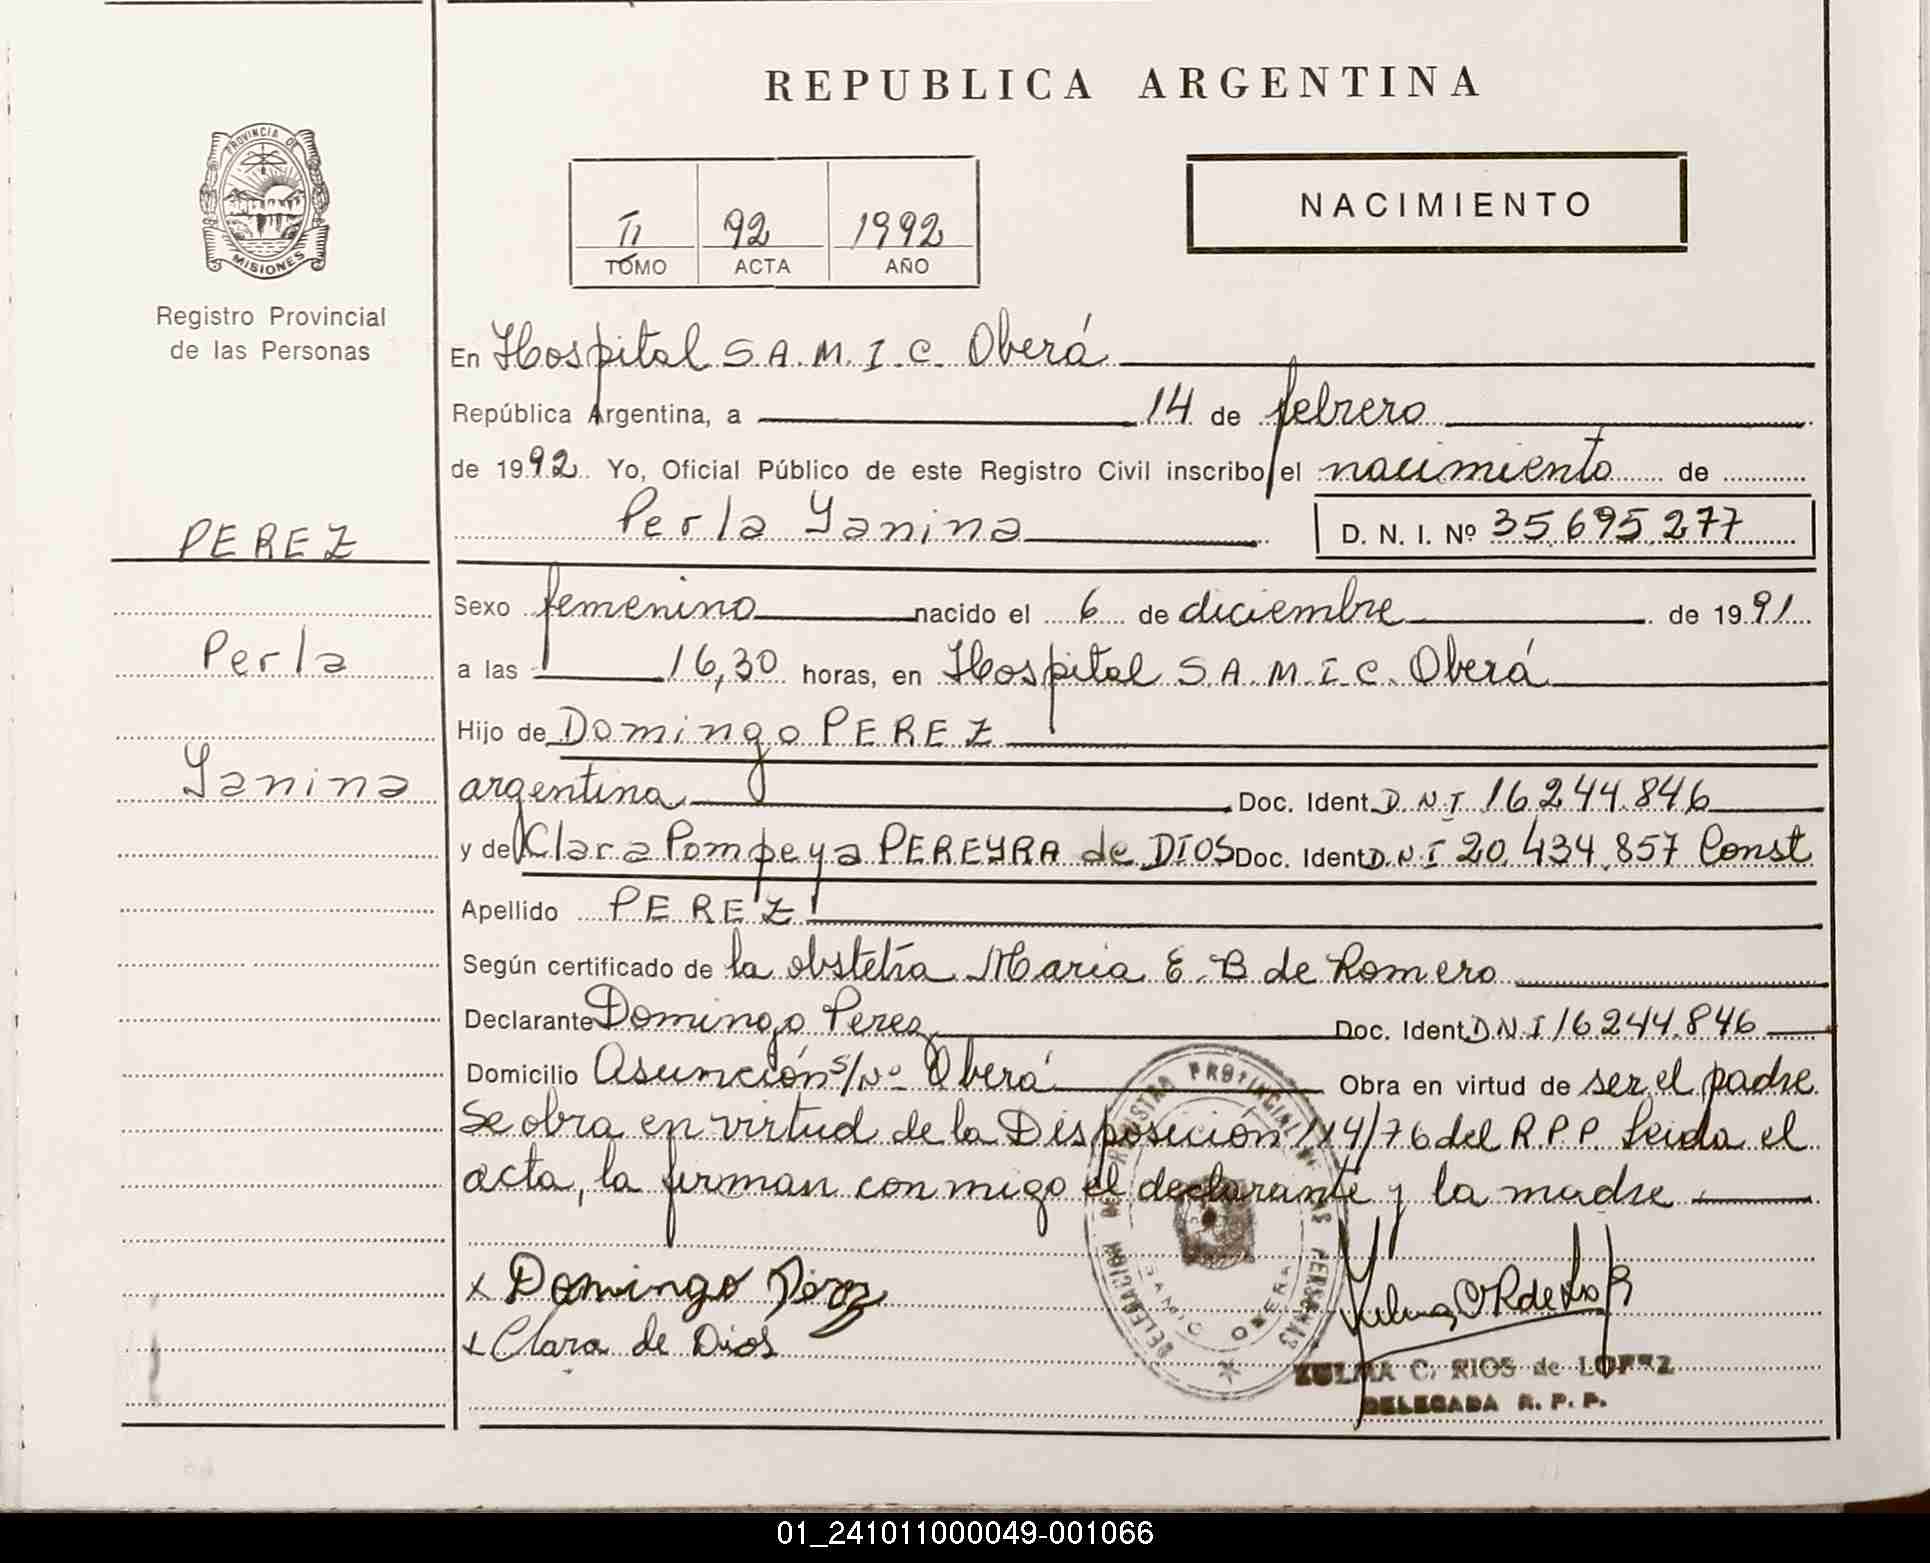 REPUBLICA ARGENTINA
PROVINCIA DE
MISIONES
Registro Provincial
de las Personas
II 92 1992
TOMO ACTA AÑO
NACIMIENTO
En Hospital S.A.M.I.C. Oberá
República Argentina, a 14 de febrero
de 1992. Yo, Oficial Público de este Registro Civil inscribo el nacimiento de
Perla Yanina D. N. I. Nº 35.695.277
PEREZ
Perla
Yanina
Sexo femenino nacido el 6 de diciembre de 1991
a las 16,30 horas, en Hospital S.A.M.I.C. Oberá
Hijo de Domingo PEREZ
argentina Doc. Ident. D.N.I 16.244.846
y de Clara Pompeya PEREYRA de DIOS Doc. Ident D.N.I 20.434.857 Const
Apellido PEREZ
Según certificado de la obstetra Maria E. B de Romero
Declarante Domingo Perez Doc. Ident. D.N.I 16.244.846
Domicilio Asunción s/Nº Oberá Obra en virtud de ser el padre
Se obra en virtud de la Disposición 114/76 del R.P.P. Leida el
acta, la firman con migo el declarante y la madre
x Domingo Pérez
x Clara de Dios
DELEGACION DEL REGISTRO PROVINCIAL DE LAS PERSONAS
ZULMA C. RIOS de LOPEZ
DELEGADA R. P. P.
01_241011000049-001066